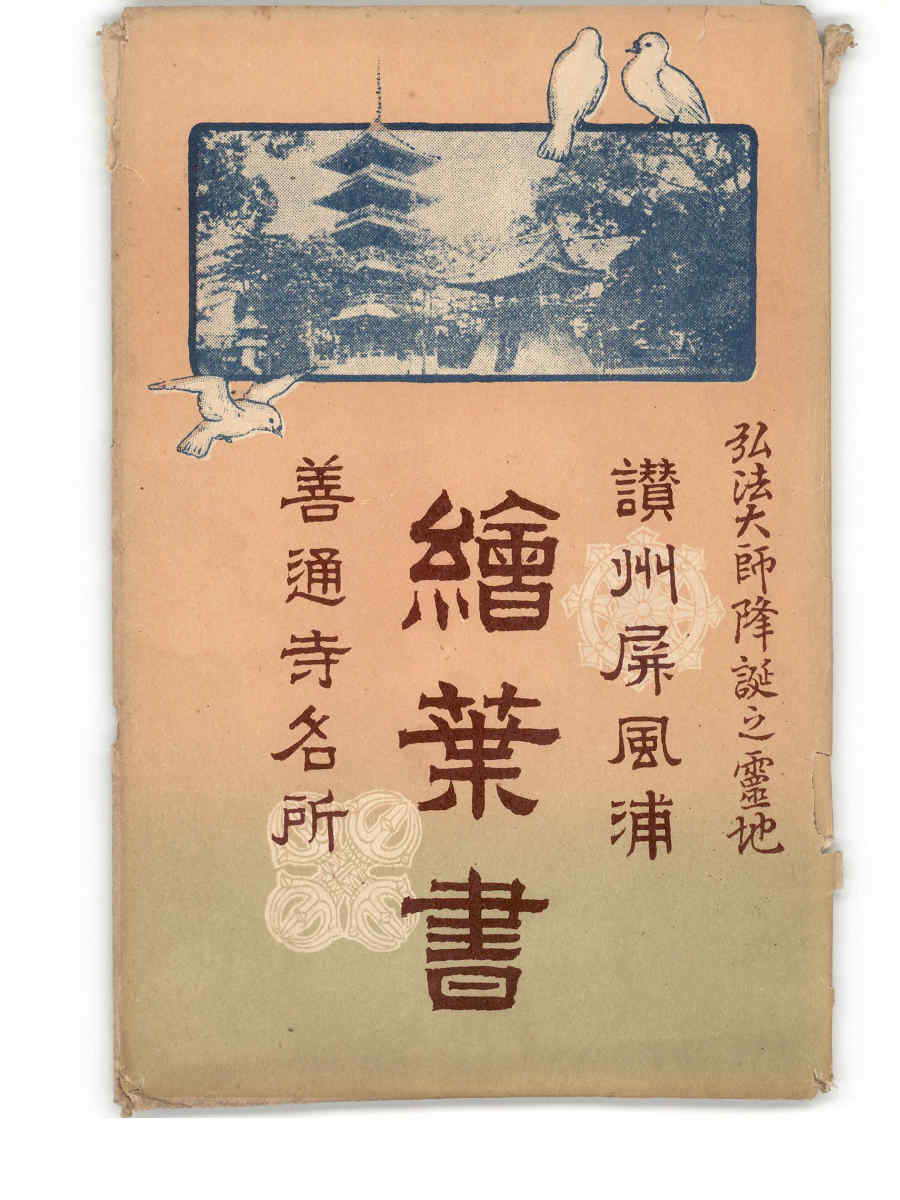 弘法大師降誕之靈地
讃州屏風浦
繪葉書
善通寺名所